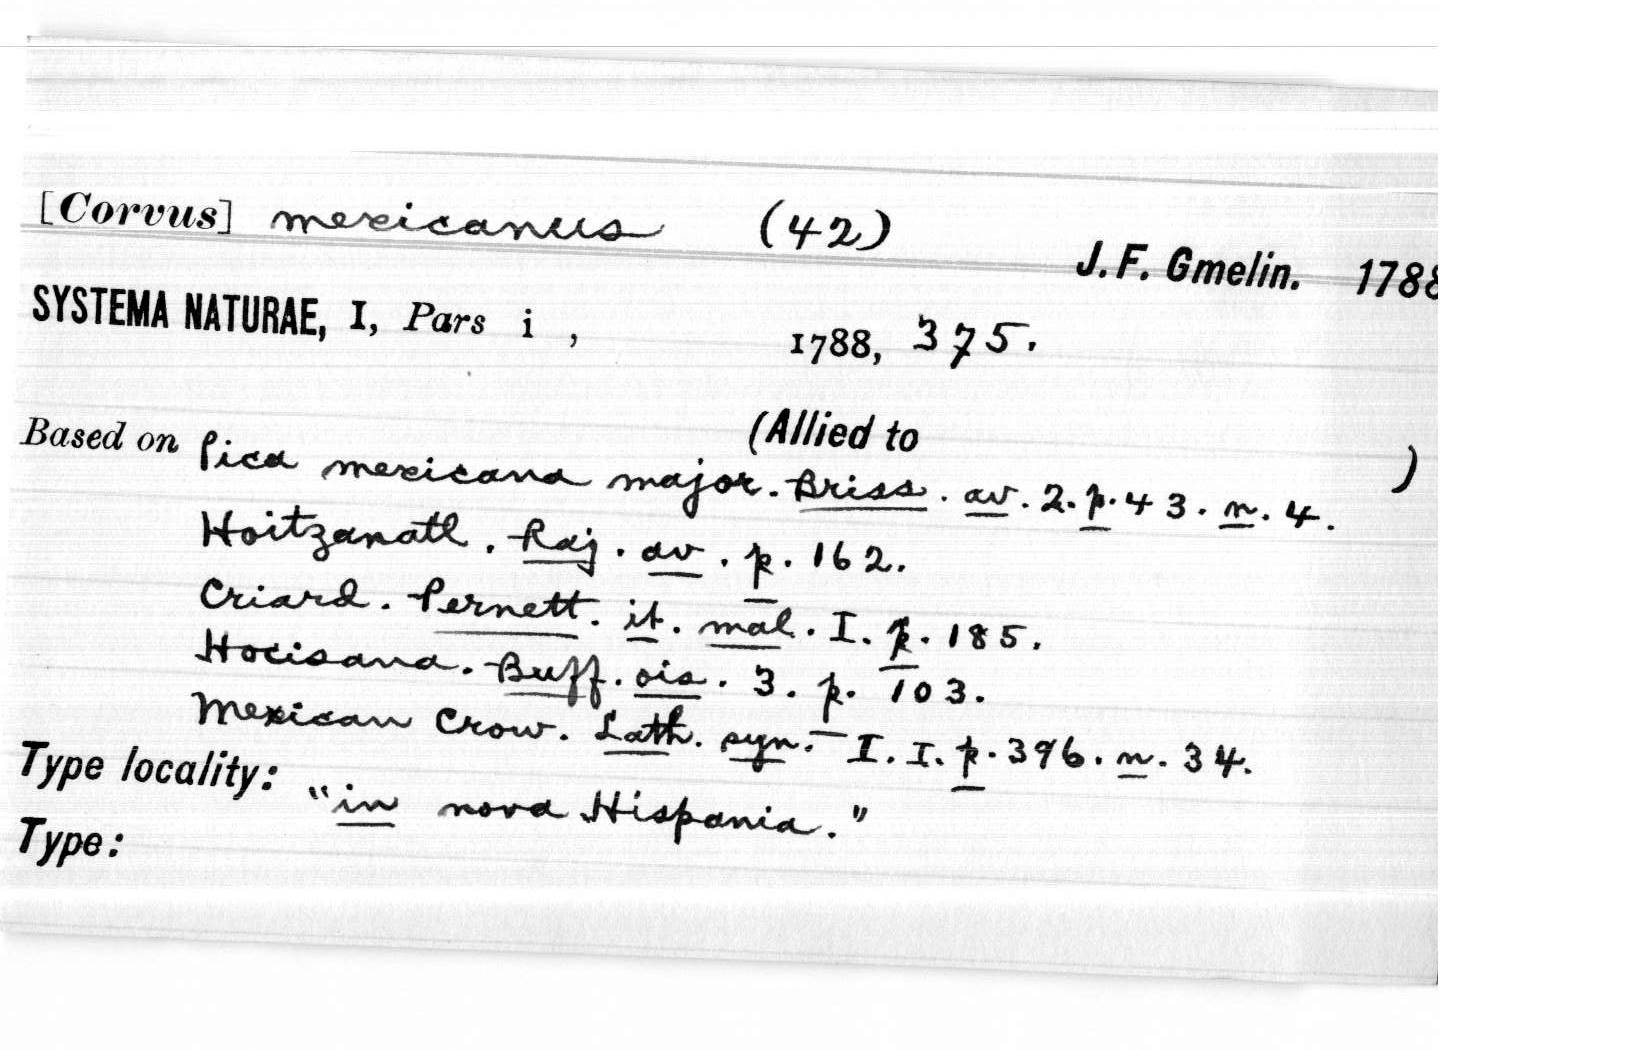 [Corvus] mexicanus (42)
J. F. Gmelin. 1788
SYSTEMA NATURAE, I, Pars i , 1788, 375.
(Allied to )
Based on Pica mexicana major. Briss. av. 2. p. 43. n. 4.
Hoitzanatl. Raj. av. p. 162.
Criard. Pernett. it. mal. I. p. 185.
Hocisana. Buff. ois. 3. p. 103.
Mexican Crow. Lath. syn. I. I. p. 396. n. 34.
Type locality: "in nova Hispania."
Type: